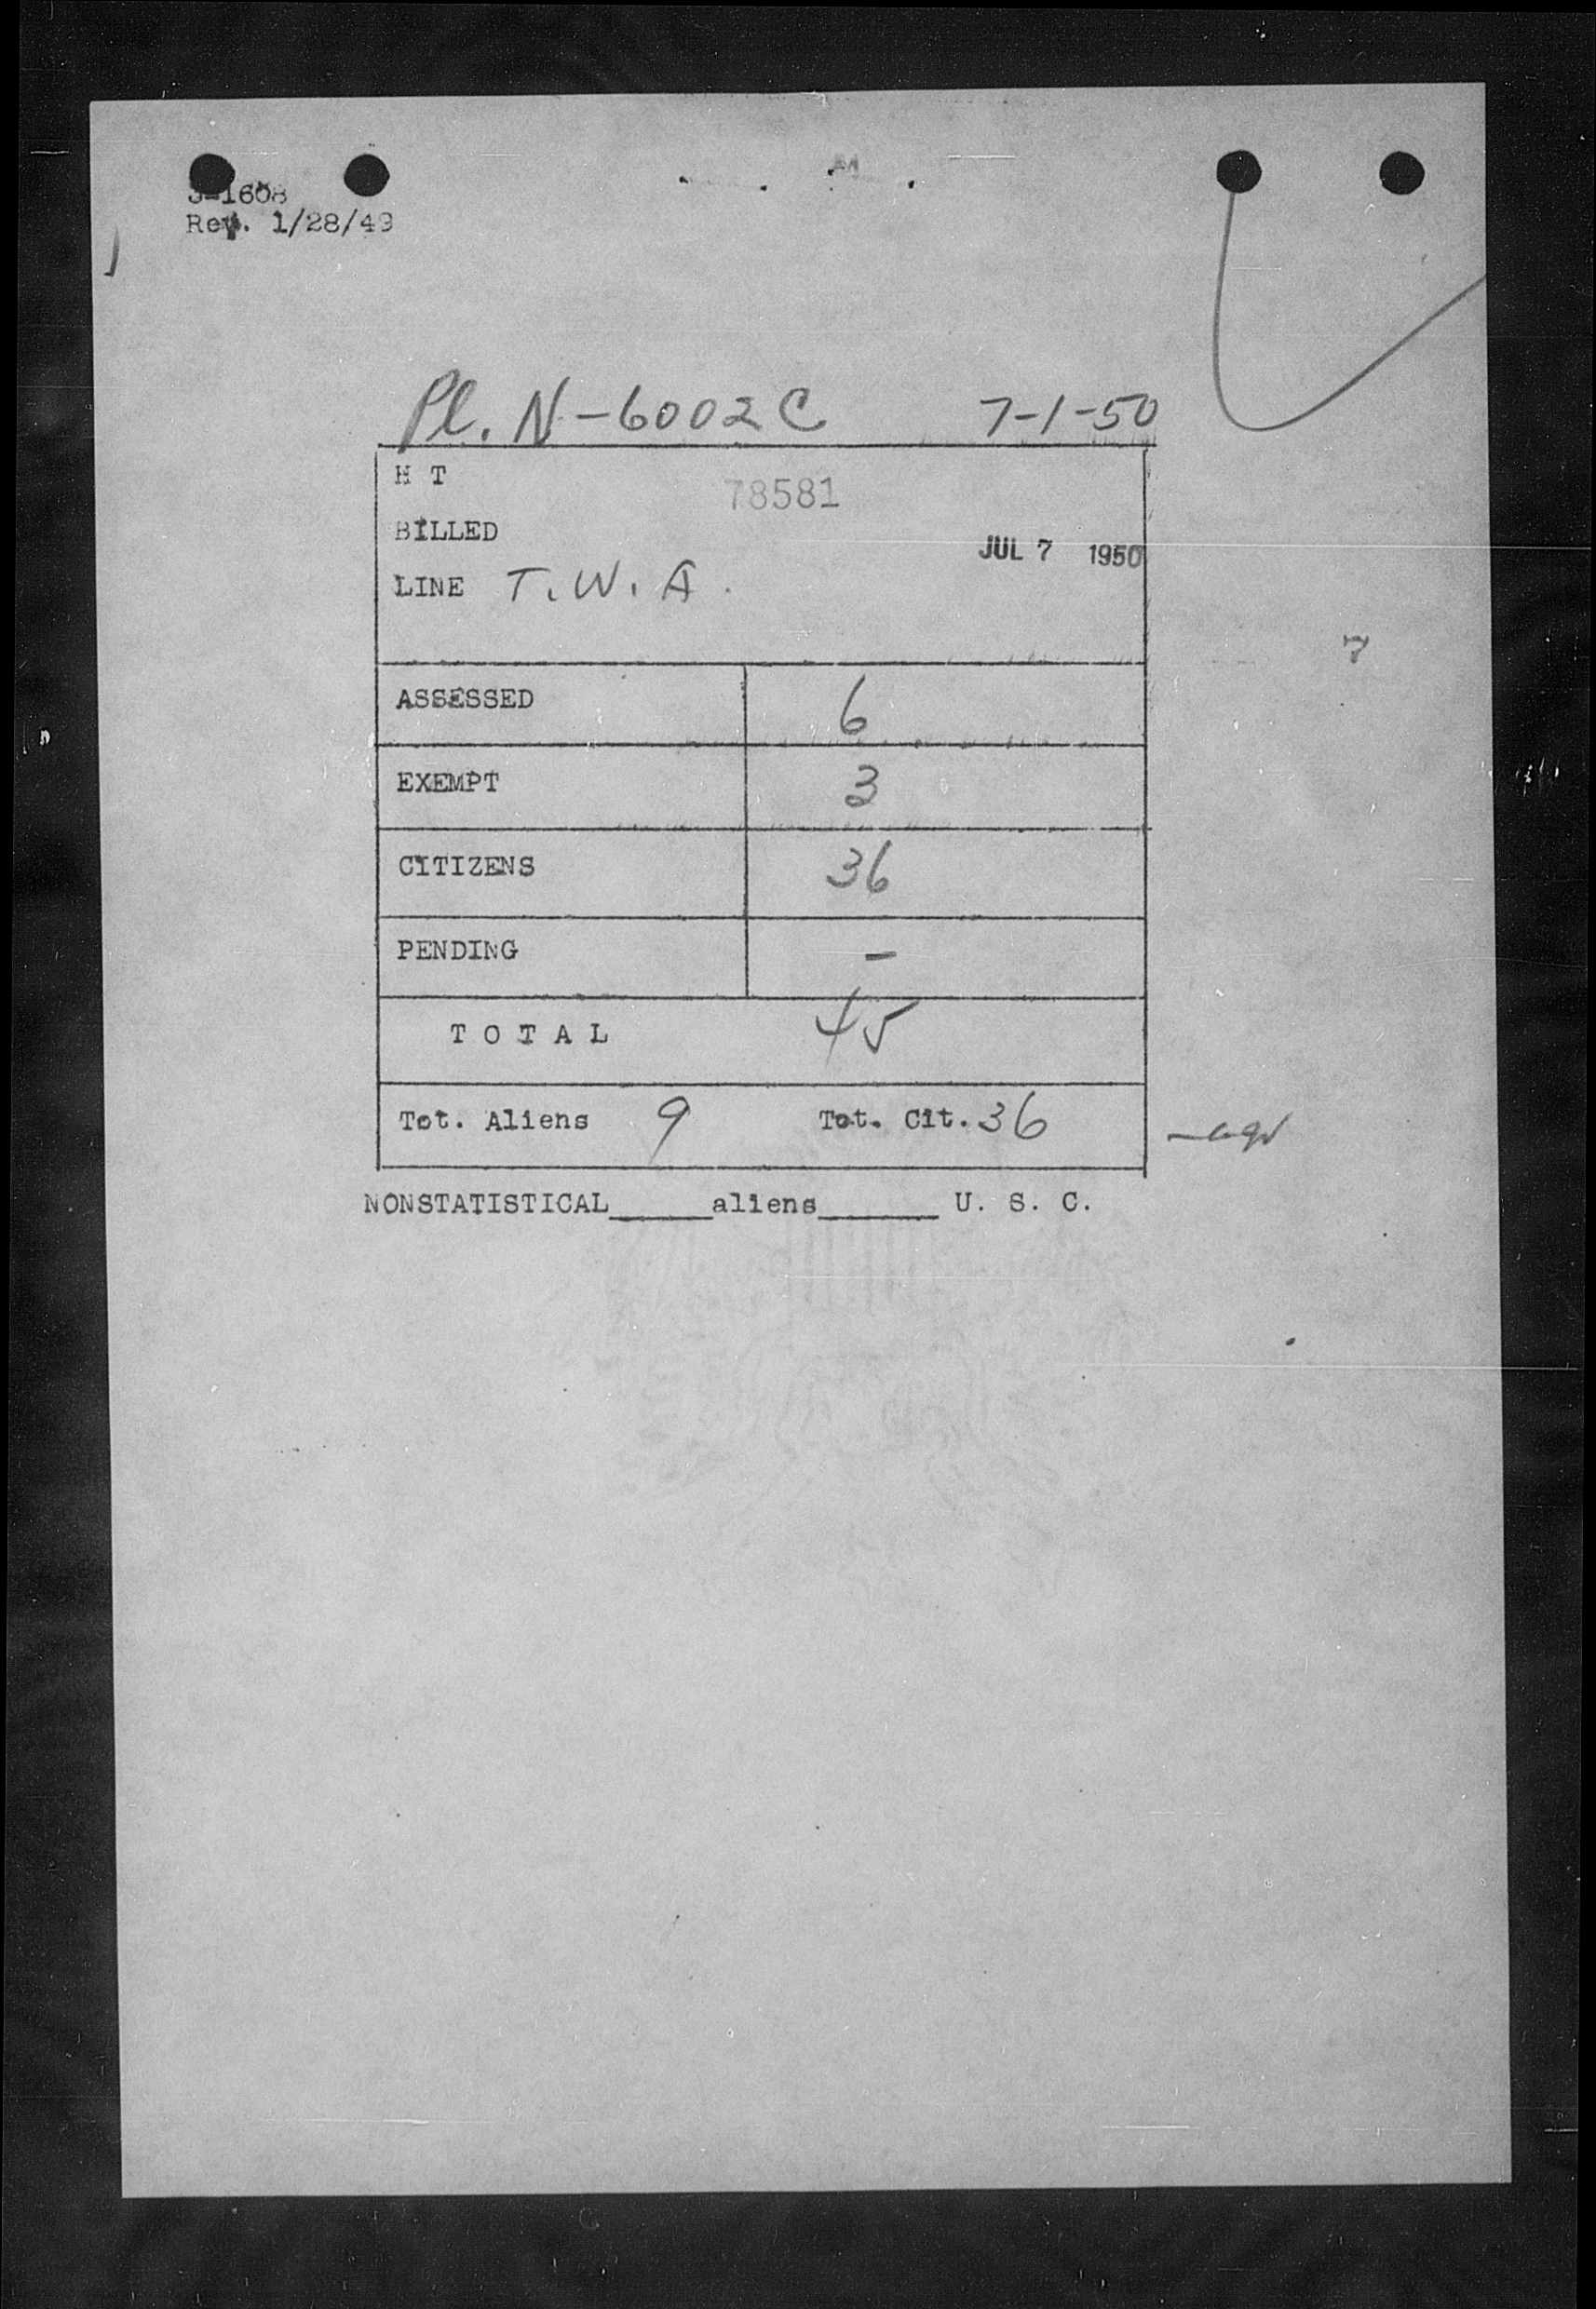 3-1608
Rev. 1/28/49
Pl. N-6002C 7-1-50
H T
78581
BILLED
JUL 7 1950
LINE T. W. A.
7
ASSESSED 6
EXEMPT 3
CITIZENS 36
PENDING -
TOTAL 45
Tot. Aliens 9 Tot. Cit. 36
NONSTATISTICAL_____aliens______ U. S. C.